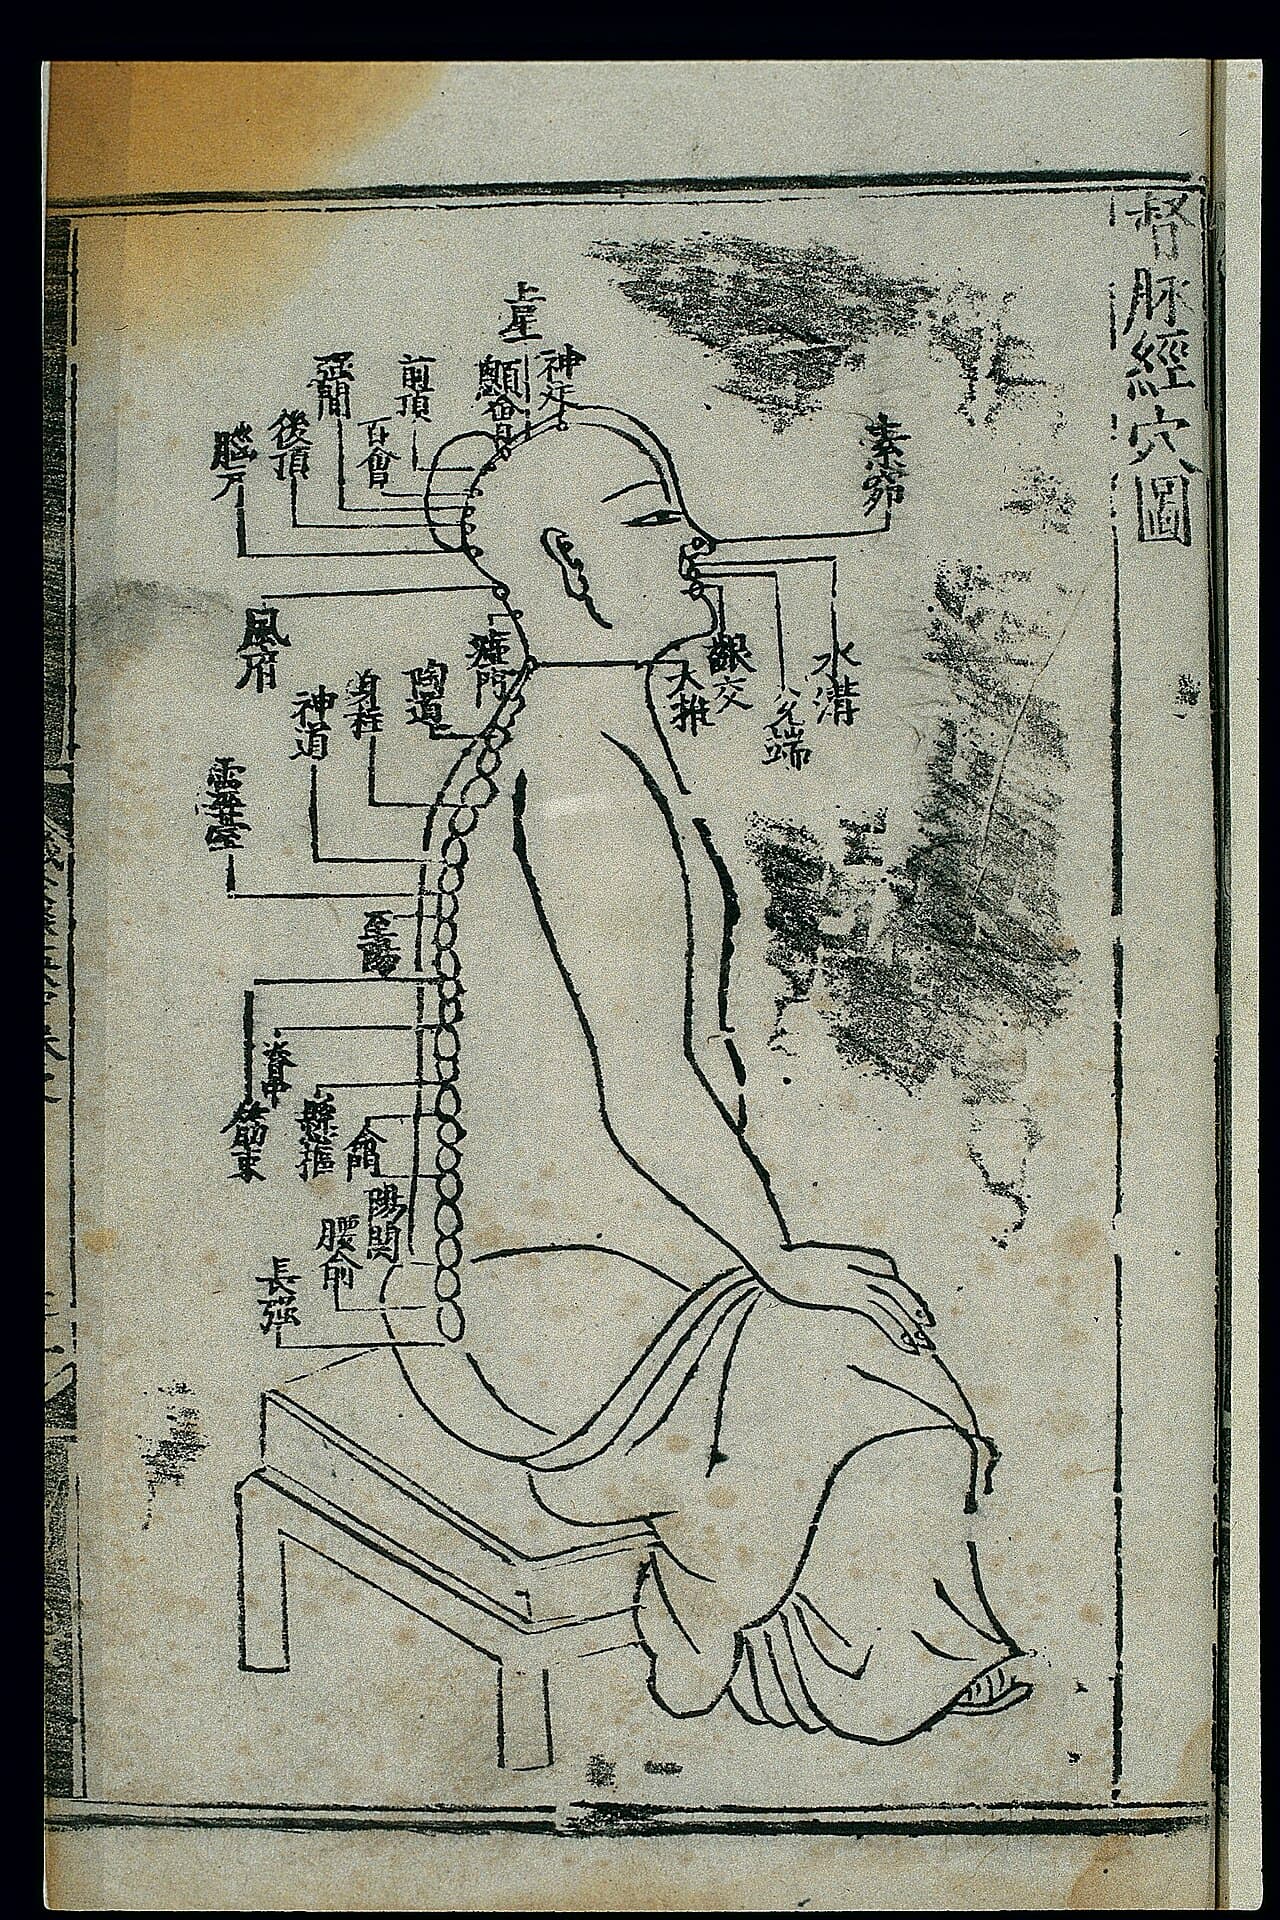 督脈經穴圖
素窌
水溝
兊端
齦交
大椎
神庭
上星
顖會
前頂
百會
亞間
後頂
腦戶
風府
瘂門
陶道
身柱
神道
靈臺
至陽
筋束
脊中
縣樞
命門
陽関
腰俞
長強